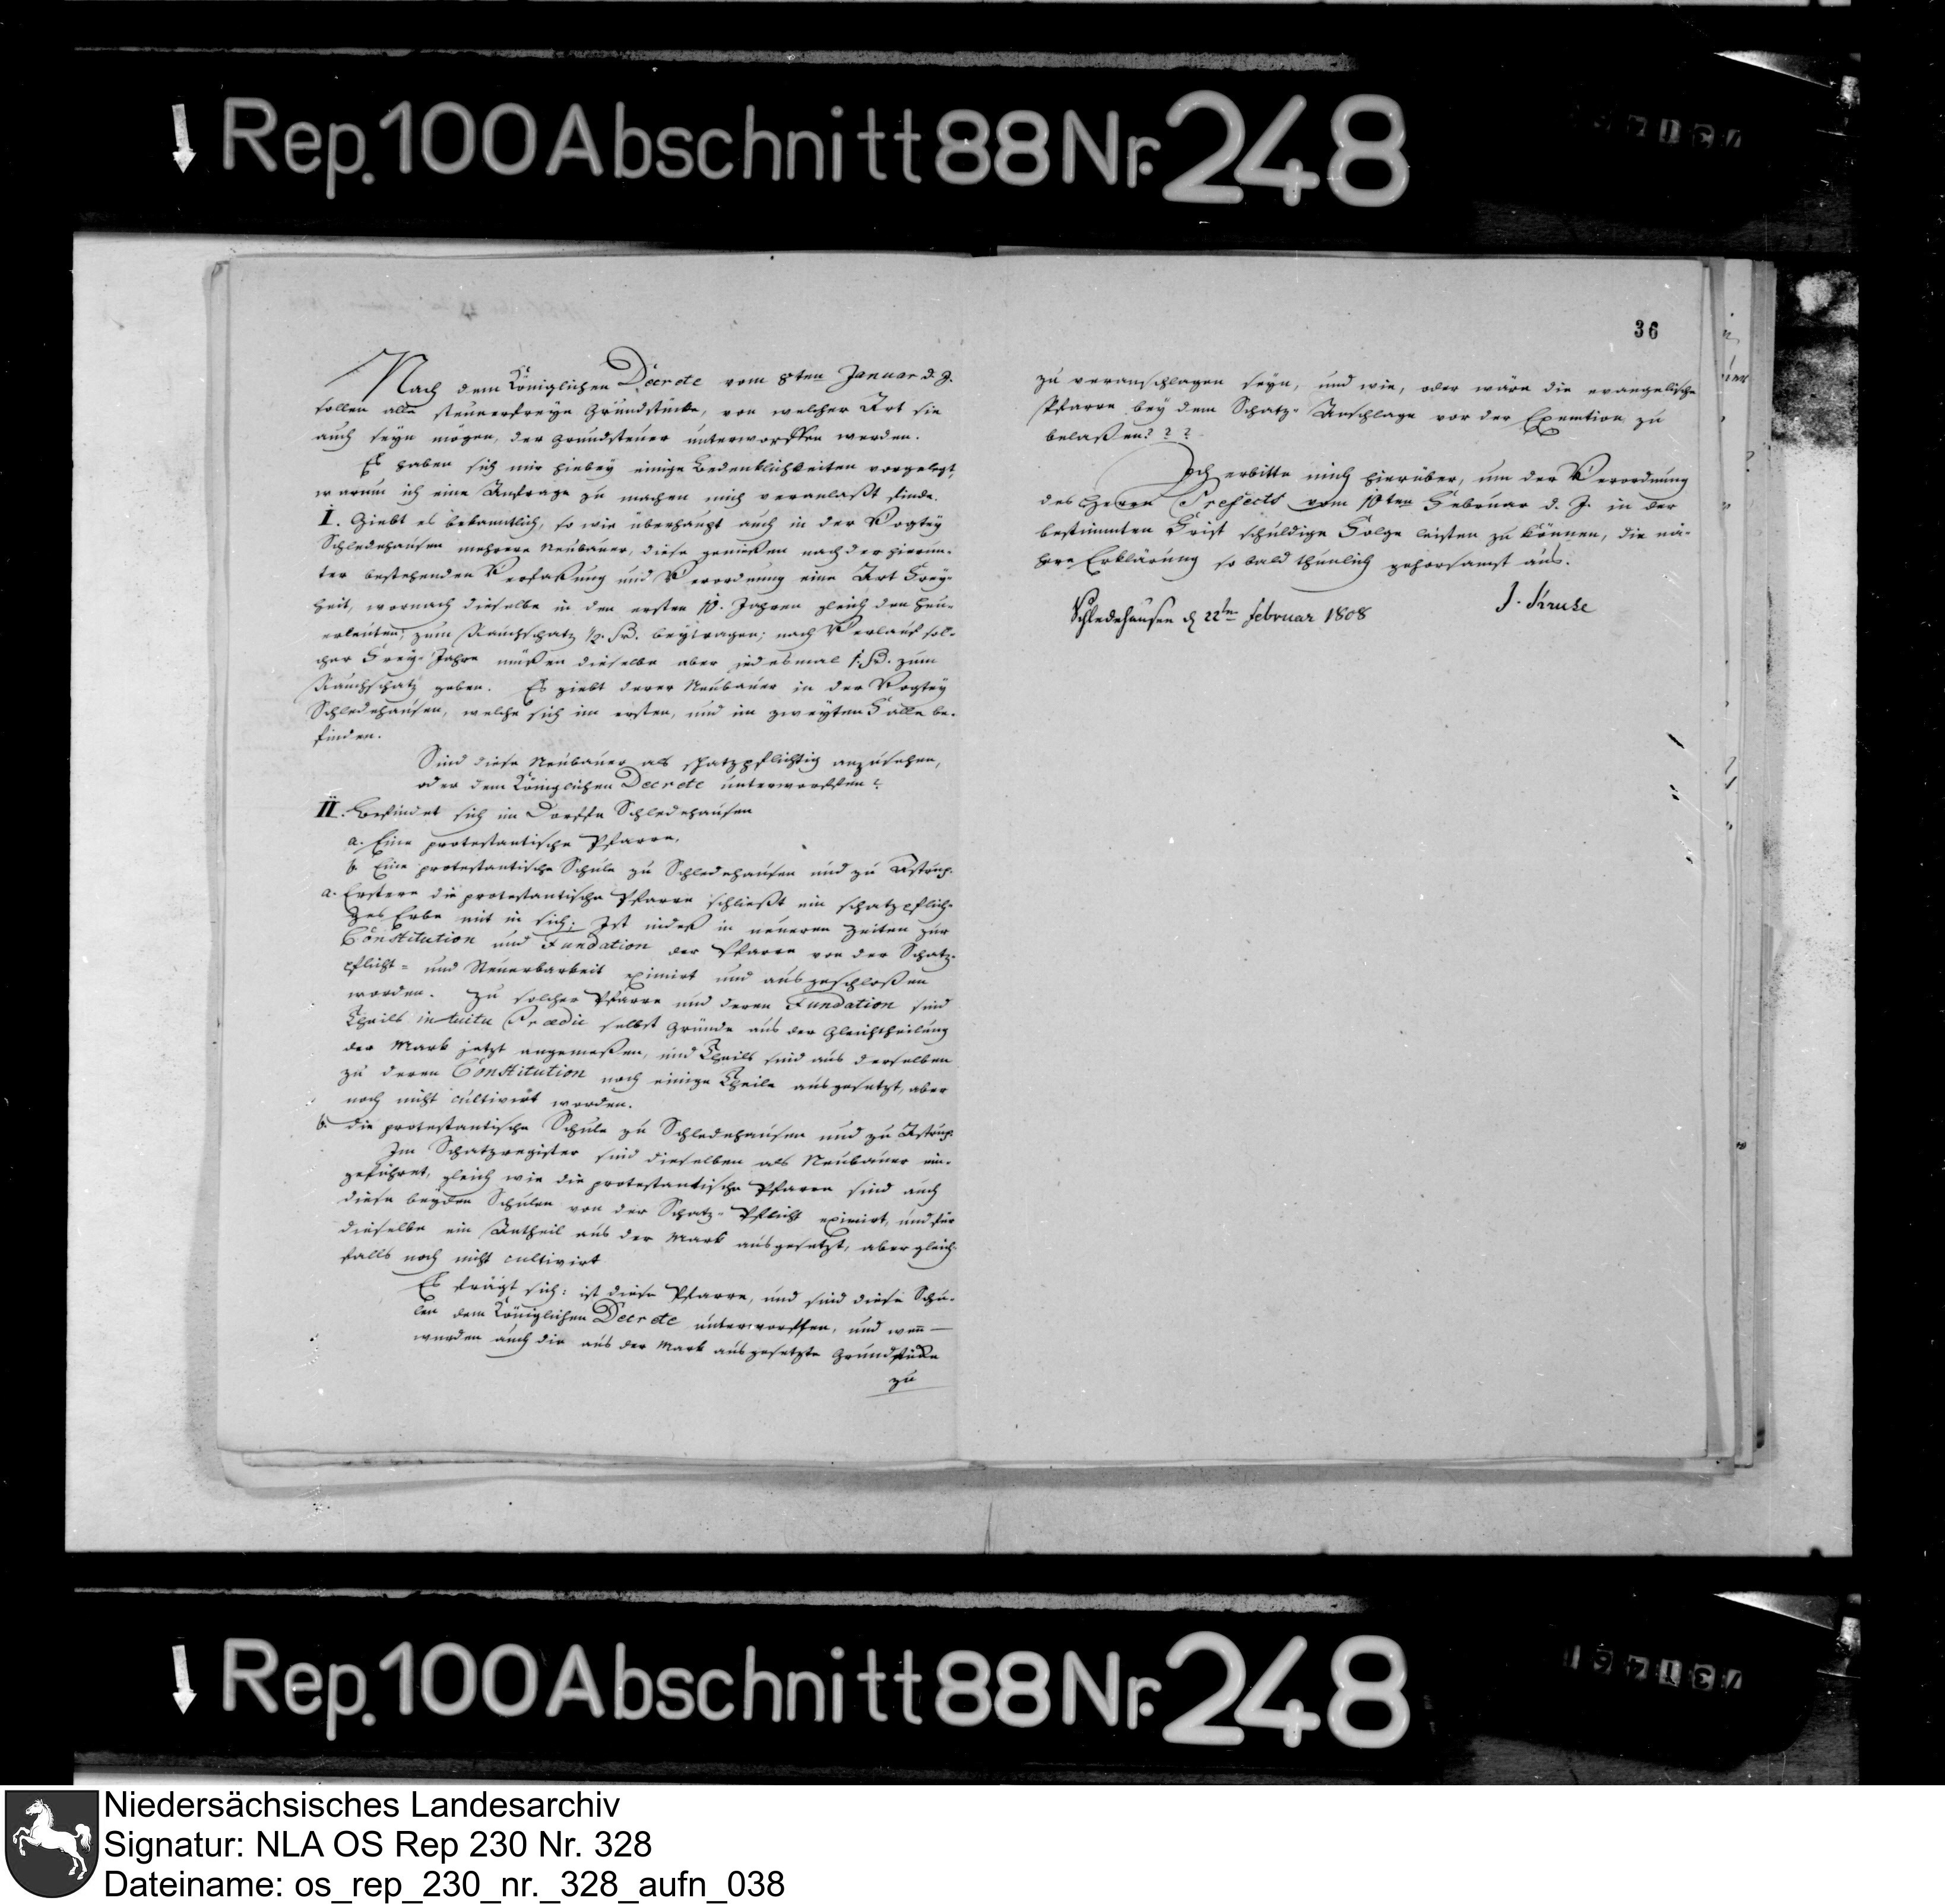 Rep. 100 Abschnitt 88 Nr. 248
Nach dem Königlichen Decrete vom 8ten Januar d. J.
sollen alle steuerfreye Grundstücke, von welcher Art sie
auch seyn mögen, der Grundsteuer unterworffen werden.
Es haben sich mir hiebey einige Bedenklichkeiten vorgelegt,
warum ich eine Anfrage zu machen mich veranlaßt finde.
I. Giebt es bekanntlich, so wie überhaupt auch in der Vogtey
Schledehausen mehrere Neubauer, diese genießen nach der hierun-
ter bestehenden Verfaßung und Verordnung eine Art Frey-
heit, wornach dieselbe in den ersten 10. Jahren gleich den Heu-
erleuten, zum Rauchschatz 1/2. beytragen; nach Verlauf sol-
cher Frey-Jahre müßen dieselbe aber jedesmal 1. zum
Rauchschatz geben. Es giebt derer Neubauer in der Vogtey
Schledehausen, welche sich im ersten, und im zweyten Falle be-
finden.
Sind diese Neubauer als schatzpflichtig anzusehen,
oder dem Königlichen Decrete unterworffen?
II. Befindet sich im Dorffe Schledehausen
a. Eine protestantische Pfarre,
b. Eine protestantische Schule zu Schledehausen und zu Astrup.
a. Erstere die protestantische Pfarre schließt ein schatzpflich-
ges Erbe mit in sich; Ist indeß in neueren Zeiten zur
Constitution und Fundation der Pfarre von der Schatz-
pflicht- und Steuerbarkeit eximirt und ausgeschloßen
worden. Zu solcher Pfarre und deren Fundation sind
Theils intuitu Prædii selbst Gründe aus der Gleichtheilung
der Mark jetzt angemeßen, und Theils sind aus derselben
zu deren Constitution noch einige Theile ausgesetzt, aber
noch nicht cultivirt worden.
b. die protestantische Schule zu Schledehausen und zu Astrup.
Im Schatzregister sind dieselben als Neubauer ein-
geführet, gleich wie die protestantische Pfarre sind auch
diese beyden Schulen von der Schatz-Pflicht eximirt, und für
dieselbe ein Antheil aus der Mark ausgesetzt, aber gleich-
falls noch nicht cultivirt
Es frägt sich: ist diese Pfarre, und sind diese Schu-
len dem Königlichen Decrete unterworffen, und wenn —
werden auch die aus der Mark ausgesetzte Grundstücke
zu
36
zu veranschlagen seyn, und wie, oder wäre die evangelische
Pfarre bey dem Schatz-Anschlage vor der Exemtion zu
belaßen???
Ich erbitte mich hierüber, um der Verordnung
des Herrn Prefects vom 10ten Februar d. J. in der
bestimmten Frist schuldige Folge leisten zu können, die nä-
here Erklärung so bald thunlich gehorsamst aus.
Schledehausen d 22ten Februar 1808
J. Kruse
Rep. 100 Abschnitt 88 Nr. 248
Niedersächsisches Landesarchiv
Signatur: NLA OS Rep 230 Nr. 328
Dateiname: os_rep_230_nr._328_aufn_038